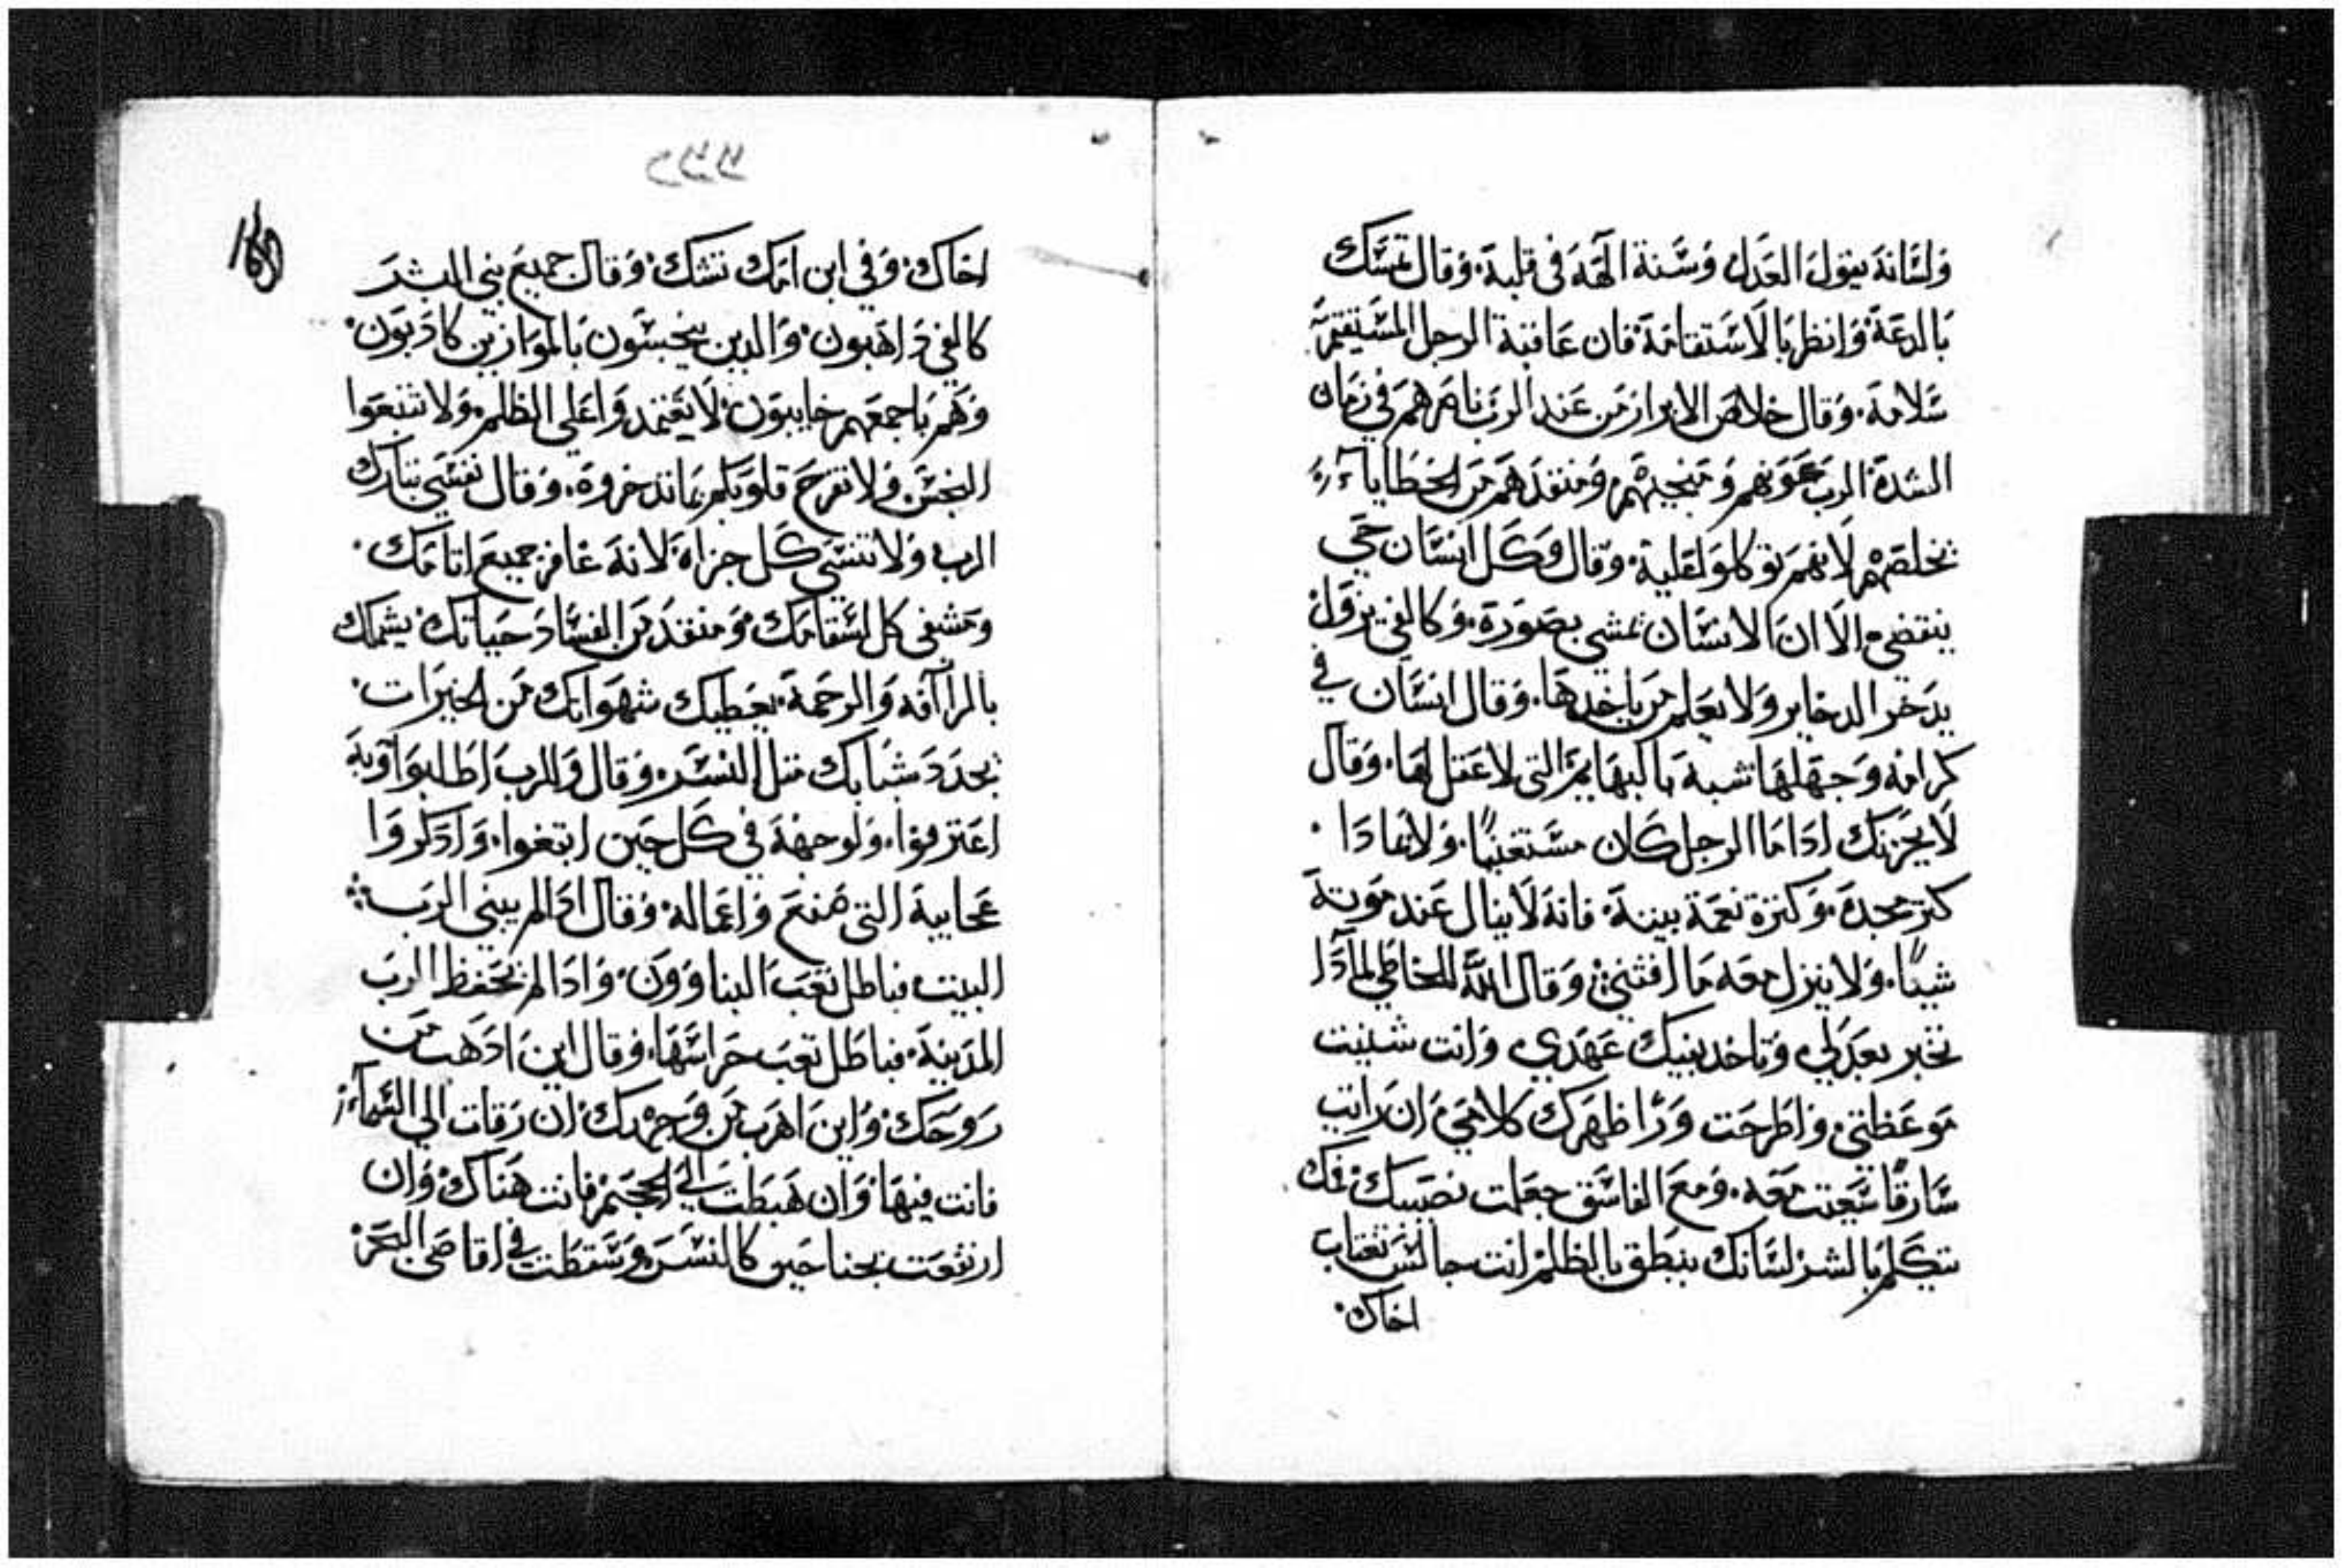 ولسانه يقول العدل وسنة الهه في قلبه. وقال تمسك
بالدعة وانظر بالاستقامة فان عاقبة الرجل المستقيم
سلامة. وقال خلاص الابرار من عند الرب ناصرهم في زمان
الشدة الرب عونهم ومنجيهم ومنقدهم من الخطايا
يخلصهم لانهم توكلو عليه. وقال وكل انسان حي
ينقضي الا ان الانسان يمشي بصورة. وكالفي يزول
يدخر الدخاير ولا يعلم من ياخدها. وقال انسان في
كرامه وجهلها شبه بالبهايم التي لا عقل لها. وقال
لا يحزنك ادا ما الرجل كان مستغنيًا. ولا ادا
كتر مجده. وكترة نعمة بيته فانه لا ينال عند موته
شيًا. ولا ينزل معه ما اقتني وقال الله للخاطي لمادا
تخبر بعدلي وتاخد بفيك عهدي وانت شنيت
موعظتي واطرحت ورا ظهرك كلامي ان رايت
سارقًا سعيت معه. ومع الفاسق جعلت نصيبك فمك
يتكلم بالشر لسانك ينطق بالظلم انت جالس تغتاب
اخاك.
اخاك. وفي ابن امك تشك. وقال جميع بني البشر
كالفي داهبون. والدين يبخسون بالموازين كادبون.
وهم باجمعهم خايبون. لا تعتمدوا على الظلم. ولا تتبعوا
البخس ولا تفرح قلوبكم بما تدخروه. وقال نفسي تبارك
الرب ولا تنسي كل جزاه لانه غافر جميع اتامك.
ومشفي كل اسقامك ومنقد من الفساد حياتك يشملك
بالراافه والرحمة. يعطيك شهواتك من الخيرات.
يجدد شبابك متل النسر. وقال والرب اطلبوا وبه
اعترفوا. ولوجهه في كل حين ابتغوا. وادكروا
عجايبه التي صنع واعماله. وقال ادا لم يبني الرب
البيت فباطل تعب البناوون. وادا لم يحفظ الرب
المدينة. فباطل تعب حراسها. وقال اين ادهب من
روحك. واين اهرب من وجهك ان رقات الي السماء
فانت فيها وان هبطت الي الجحيم فانت هناك وان
ارتفعت بجناحين كالنسر وسقطت في اقاصي البحر